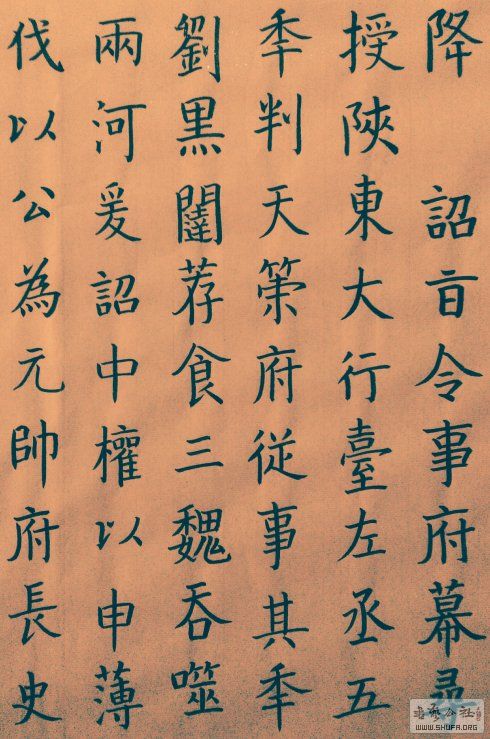 降 詔旨令事府幕尋
授陝東大行臺左丞五
秊判天策府從事其秊
劉黑闥荐食三魏吞噬
兩河爰詔中權以申薄
伐以公為元帥府長史
書藝公社
WWW.SHUFA.ORG